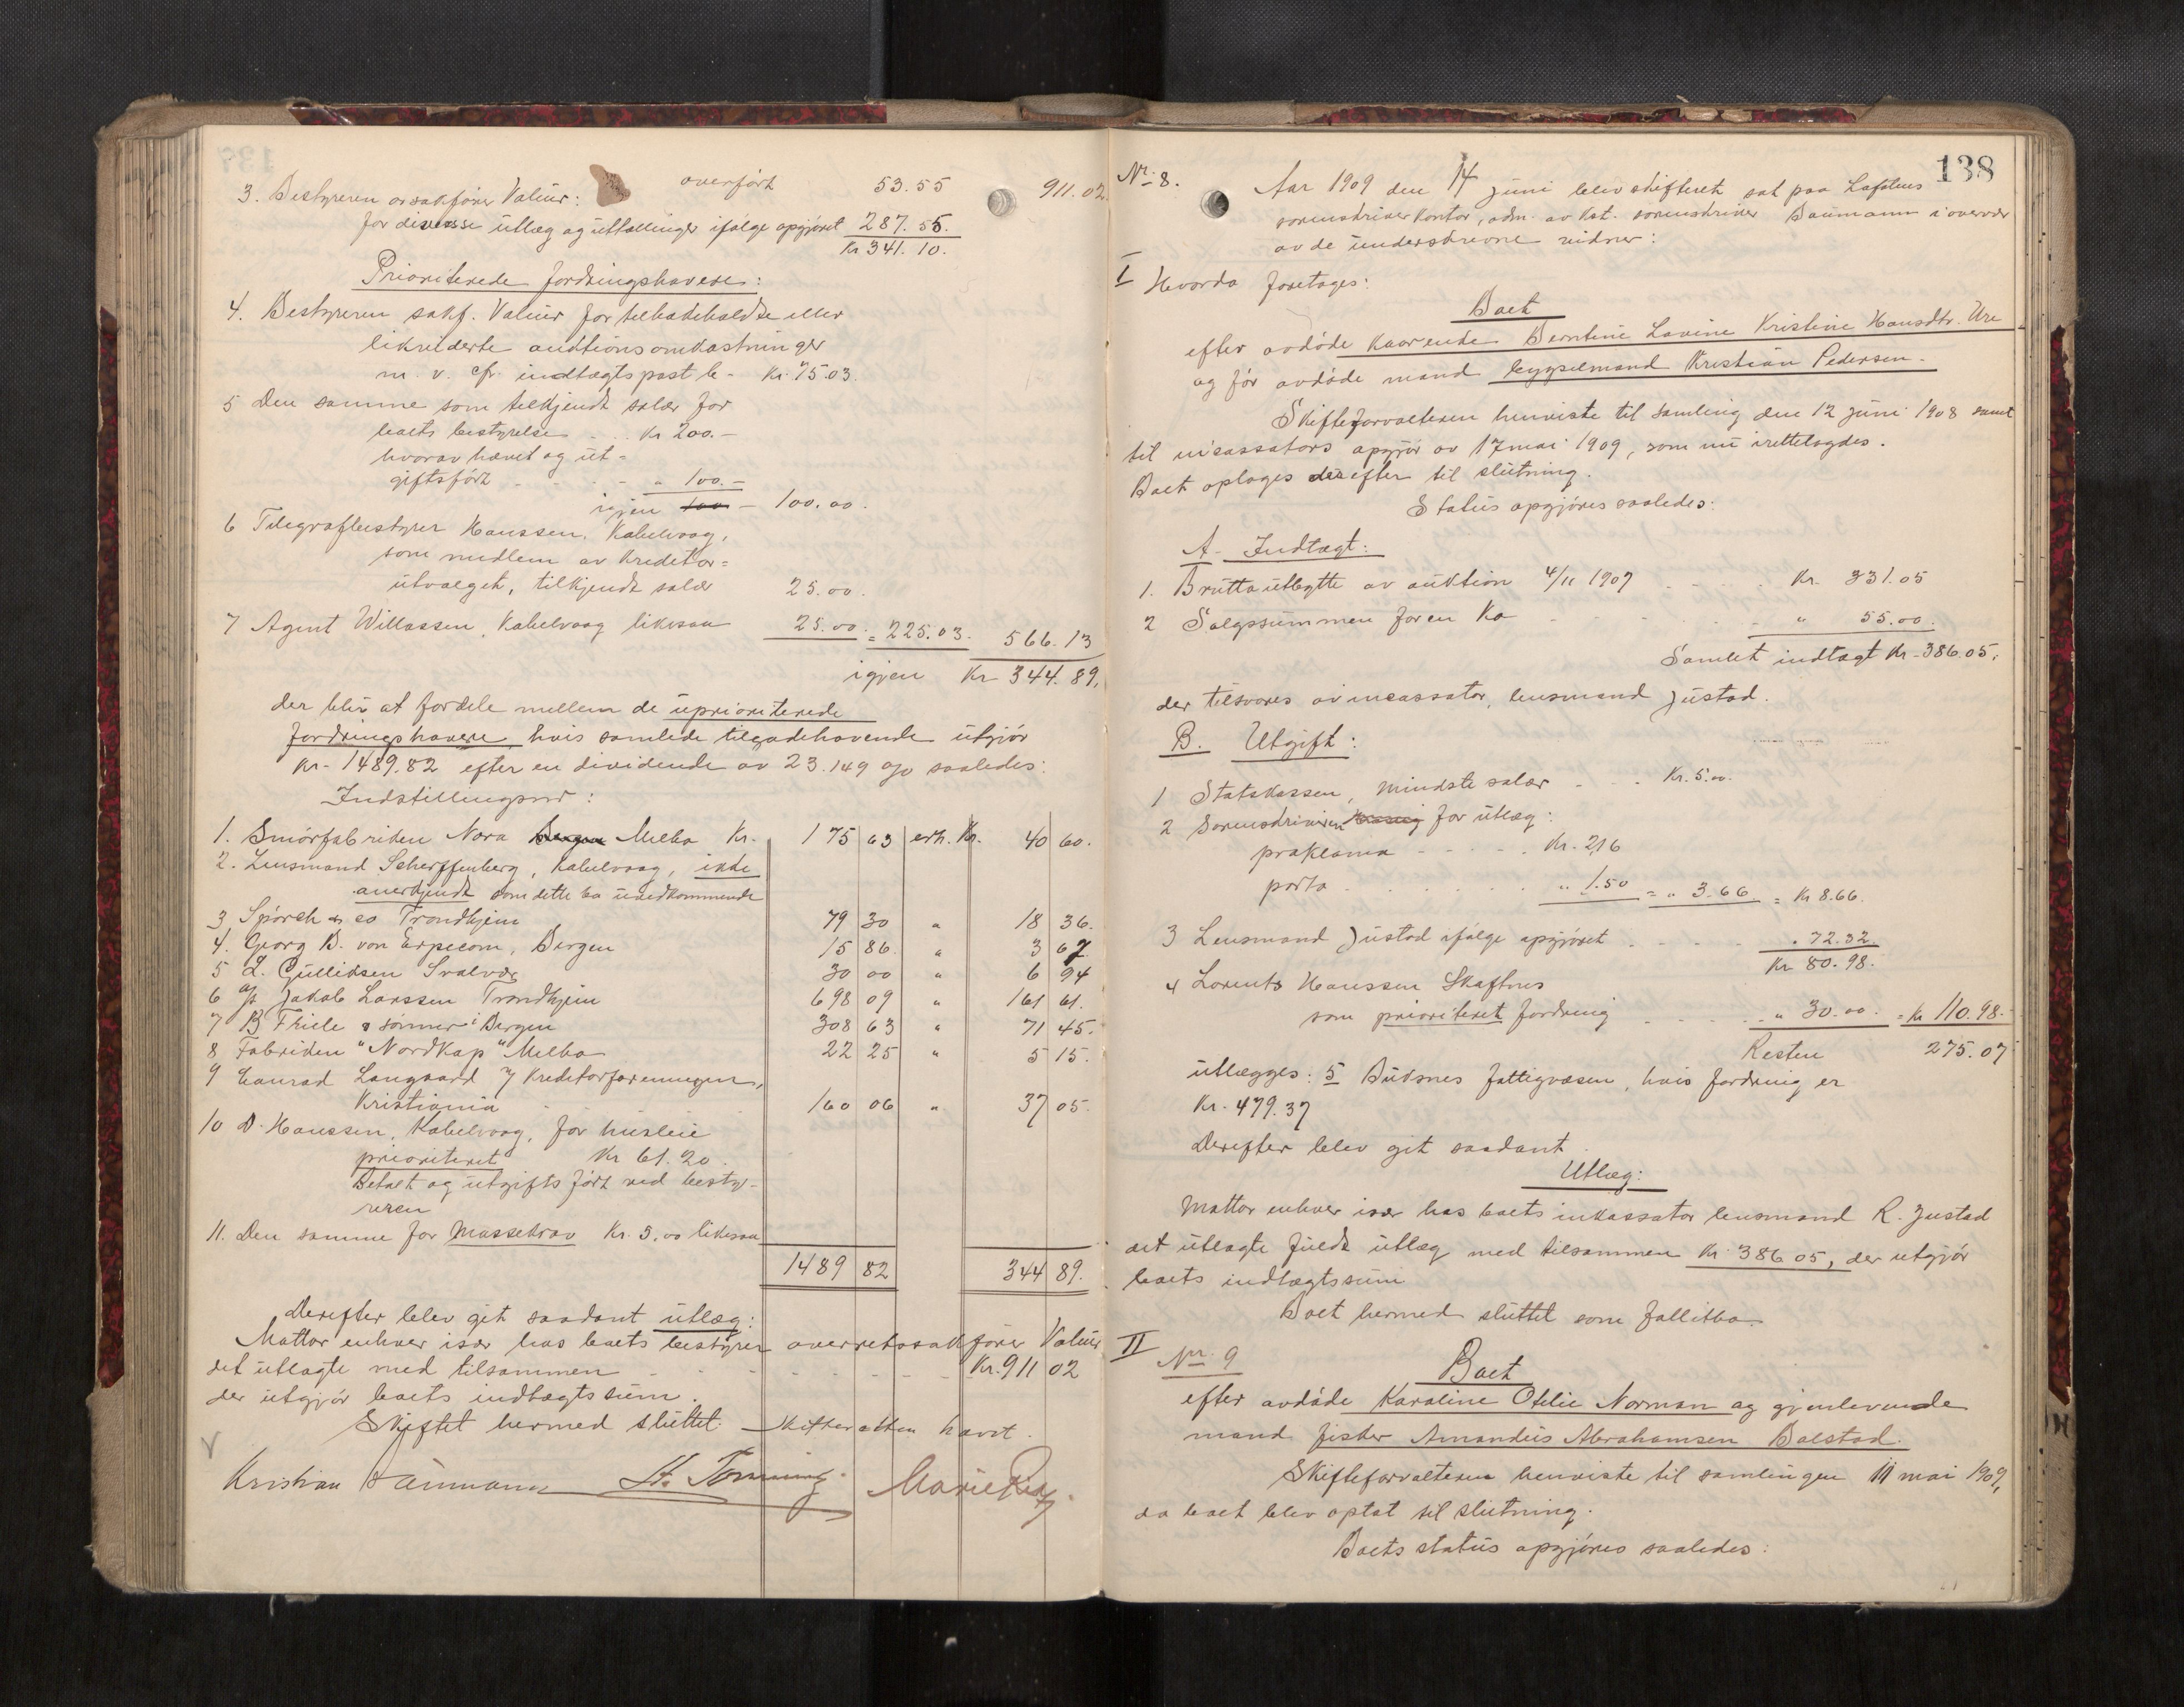 overført 53.55 911.02
3. Bestyreren orsakfører Valeur:
for diverse utlæg og uttællinger ifølge opgjøret 287.55.
Kr 341.10.
Prioriterede fordringshavere:
4. Bestyreren sakf. Valeur for tilbakeholdte eller
likviderte auktionsomkostninger
m. v. cfr. indtægtspost 6 - Kr. 75.03.
5 Den samme som tilkjendt salær for
boets bestyrelse . . Kr 200.-
hvorav hævet og ut-
giftsført - - - - " 100.-
igjen 100 - 100.00.
6 Telegrafbestyrer Hanssen, Kabelvaag,
som medlem av Kreditor-
utvalget, tilkjendt salær 25.00.
7 Agent Willassen, Kabelvaag likesaa 25.00. = 225.03. 566.13
igjen Kr 344.89,
der blir at fordele mellem de uprioriterede
fordringshavere, hvis samlede tilgodehavende utgjør
Kr- 1489.82 efter en dividende av 23.149 o/o saaledes:
Indstillingsnr:
1. Smörfabriken Nora Bergen Melbo Kr. 175 63 erh. Kr. 40 60.
2. Lensmand Scherffenberg, Kabelvaag, ikke
anerkjendt som dette bo uvedkommende
3 Spörch & co Trondhjem 79 30 " 18 36.
4. Georg B. von Erpecom, Bergen 15 86 " 3 67
5 L. Gulliksen Svolvær 30 00 " 6 94
6 A/s Jakob Larssen Trondhjem 698 09 " 161 61.
7 B Friele & sønner i Bergen 308 63 " 71 45.
8 Fabriken "Nordkap" Melbo 22 25 " 5 15.
9 Conrad Langaard v/ Kreditorforeningen,
Kristiania 160 06 " 37 05.
10 D. Hanssen, Kabelvaag, for husleie
prioriteret Kr 61.20.
Betalt og utgiftsført ved besty-
reren
11. Den samme for Massekrav Kr. 5.00 likesaa
1489 82 344 89.
Derefter blev git saadant utlæg:
Mottar enhver især hos boets bestyrer overretssakfører Valeur
det utlagte med tilsammen - - - - - - Kr. 911 02
der utgjør boets indtægtssum.
Skiftet hermed sluttet. Skifteretten hævet.
Kristian Baumann St. Tønning. Marie
138
Nr. 8. Aar 1909 den 14 juni blev skifteret sat paa Lofotens
sorenskriverkontor, adm. av Kst. sorenskriver Baumann i overvær
av de underskrevne vidner:
I Hvorda foretoges:
Boet
efter avdøde Kaarenke Berntine Lovine Kristine Hansdtr. Ure
og før avdøde mand bygselmand Kristian Pedersen.
Skifteforvalteren henviste til samling den 12 juni 1908 samt
til incassators opgjør av 17 mai 1909, som nu irettelagdes.
Boet optoges derefter til slutning.
Status opgjøres saaledes:
A- Indtægt:
1. Bruttoutbytte av auktion 4/11 1907 - - . Kr. 331.05
2 Salgssummen for en Ko - - - - - " 55.00.
Samlet indtægt Kr- 386.05,
der tilsvares av incassator, lensmand Justad.
B. Utgift:
1 Statskassen, mindste salær - - - Kr. 5.00.
2 Sorenskriveren for utlæg:
proklama - - - - . Kr. 2,16
porto . . . . . . " 1.50 = " 3.66 = Kr 8.66.
3 Lensmand Justad ifølge opgjøret . - - - . 72.32
Kr 80.98.
4 Lorents Hanssen Skaftnes
som prioriteret fordring . . . . " 30.00. = Kr 110.98.
Resten 275.07
utlægges: 5 Buksnes fattigvæsen, hvis fordring er
Kr. 479.37
Derefter blev git saadant
Utlæg:
Mottar enhver især hos boets inkassator lensmand R. Justad
det utlagte fuldt utlæg med tilsammen Kr. 386 05, der utgjør
boets indtægtssum
Boet hermed sluttet som fallitbo
II Nr. 9
Boet
efter avdøde Karoline Otelie Norman og gjenlevende
mand fisker Amandus Abrahamsen Balstad.
Skifteforvalteren henviste til samlingen 11 mai 1909,
da boet blev optat til slutning.
Boets status opgjøres saaledes: